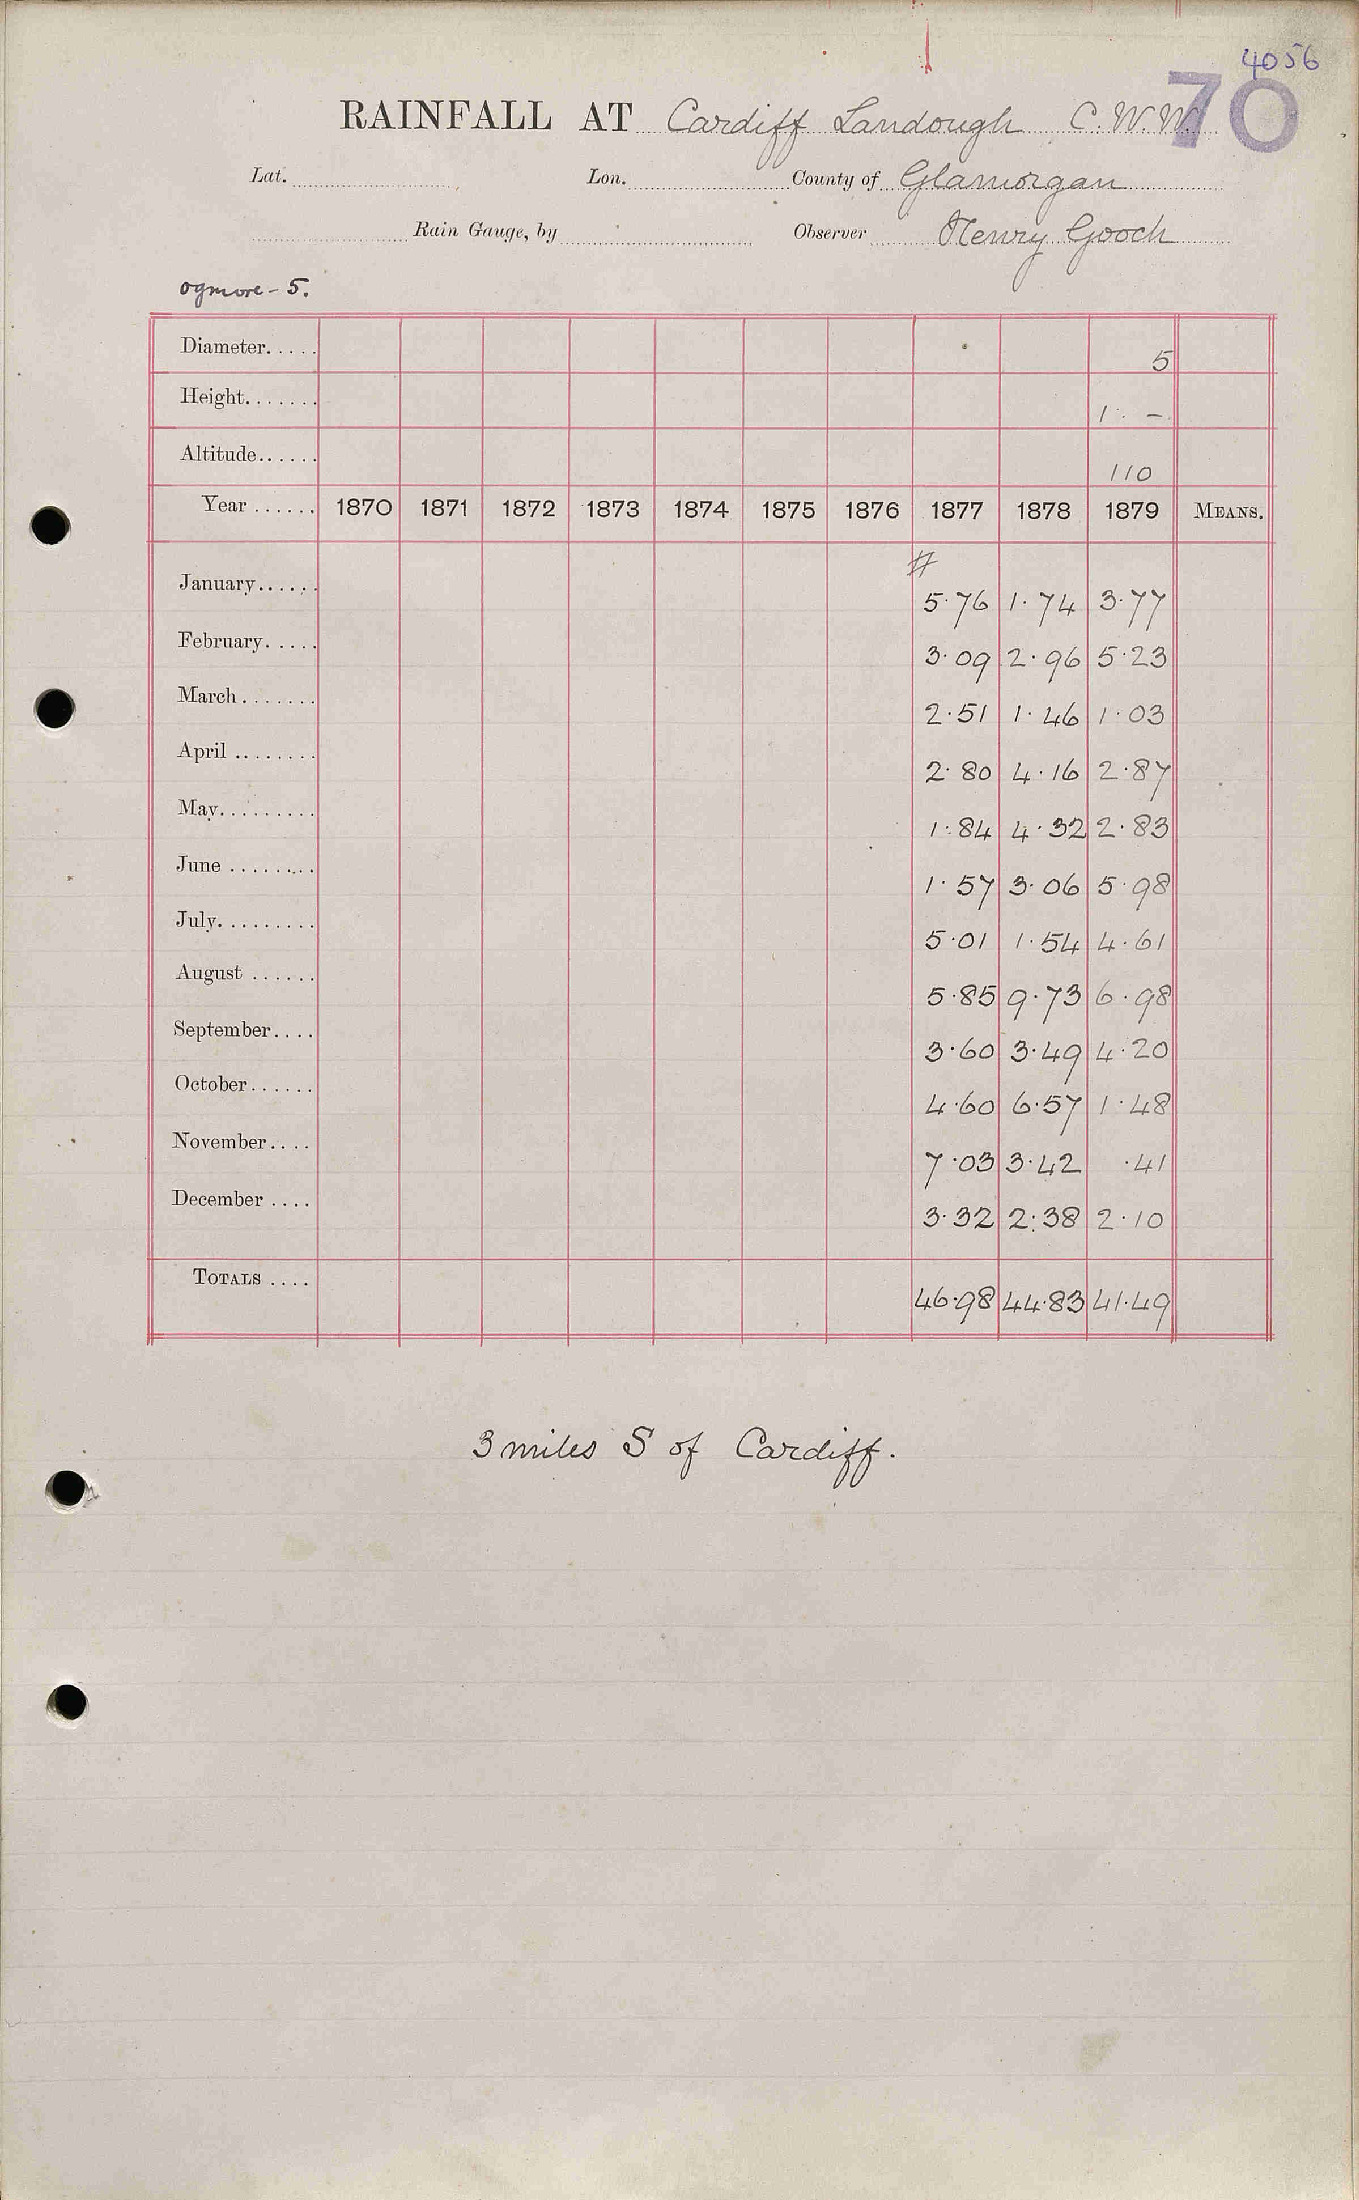 4056
70
RAINFALL AT Cardiff Landough C.W.W.
Lat. Lon. County of Glamorgan
Rain Gauge, by Observer Henry Gooch
ogmore - 5.
Diameter..... 5
Height....... 1 · -
Altitude...... 110
Year ...... 1870 1871 1872 1873 1874 1875 1876 1877 1878 1879 MEANS.
#
January...... 5·76 1·74 3·77
February..... 3·09 2·96 5·23
March....... 2·51 1·46 1·03
April ........ 2·80 4·16 2·87
May......... 1·84 4·32 2·83
June ........ 1·57 3·06 5·98
July......... 5·01 1·54 4·61
August ...... 5·85 9·73 6·98
September.... 3·60 3·49 4·20
October...... 4·60 6·57 1·48
November.... 7·03 3·42 ·41
December .... 3·32 2·38 2·10
TOTALS .... 46·98 44·83 41·49
3 miles S of Cardiff.